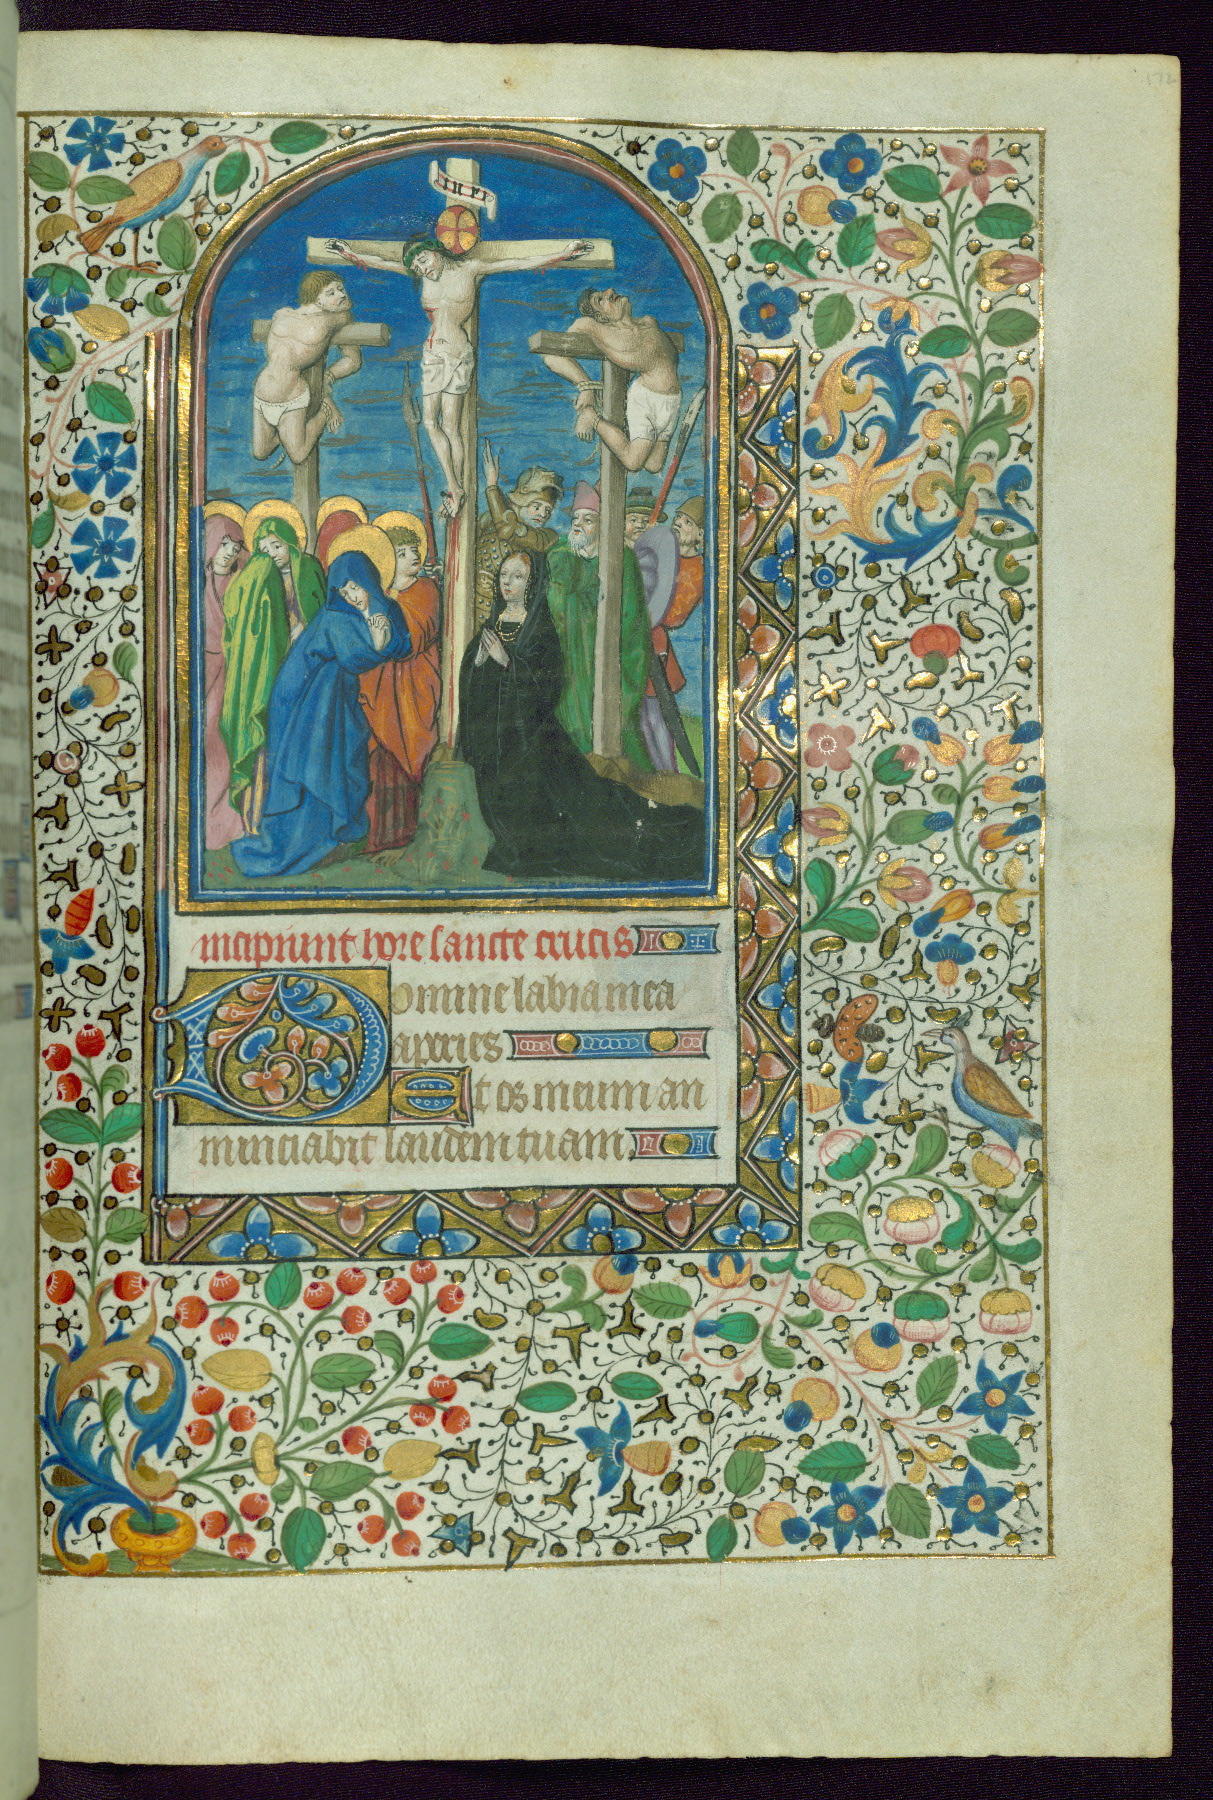 172
INRI
incipiunt hore sancte crucis
Domine labia mea
aperies
Et os meum an
nunciabit laudem tuam.